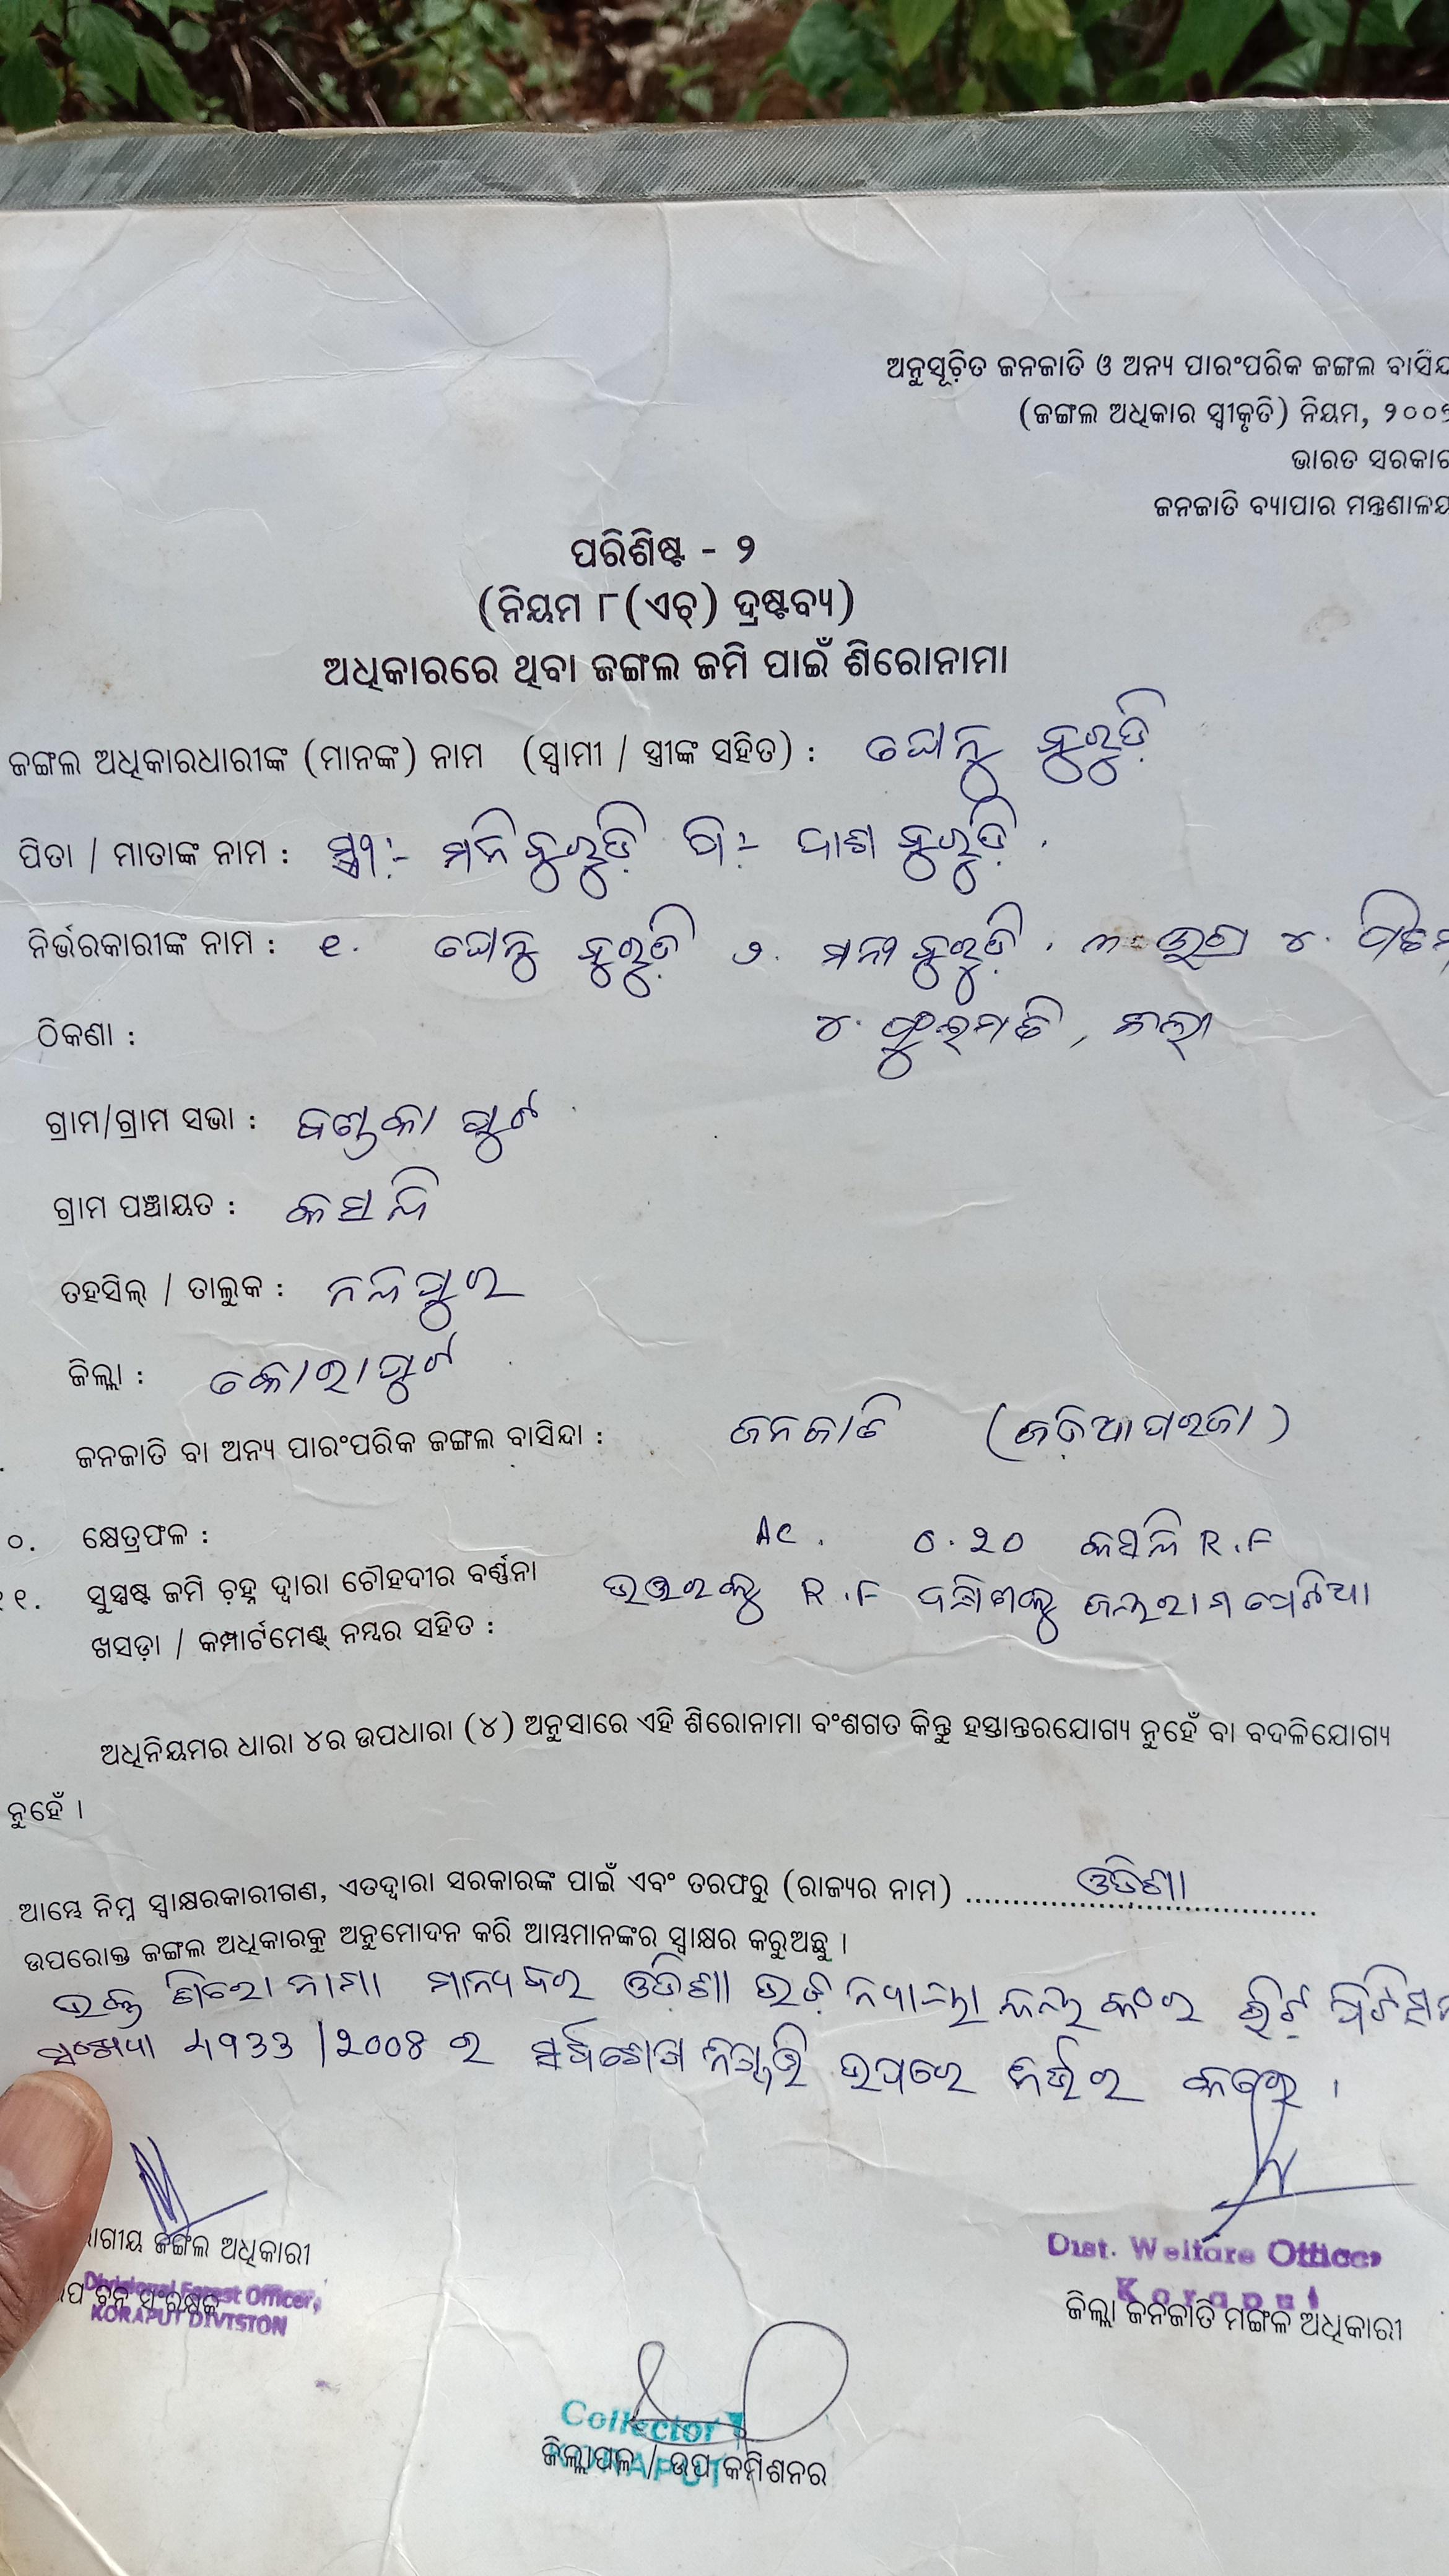 ଅନୁସୂଚିତ ଜନଜାତି ଓ ଅନ୍ୟ ପାରଂପରିକ ଜଙ୍ଗଲ ବାସିନ୍ଦା
(ଜଙ୍ଗଲ ଅଧିକାର ସ୍ୱୀକୃତି) ନିୟମ, ୨୦୦୭
ଭାରତ ସରକାର
ଜନଜାତି ବ୍ୟାପାର ମନ୍ତ୍ରଣାଳୟ
ପରିଶିଷ୍ଟ - ୨
(ନିୟମ ୮(ଏଚ୍) ଦ୍ରଷ୍ଟବ୍ୟ)
ଅଧିକାରରେ ଥିବା ଜଙ୍ଗଲ ଜମି ପାଇଁ ଶିରୋନାମା
ଜଙ୍ଗଲ ଅଧିକାରଧାରୀଙ୍କ (ମାନଙ୍କ) ନାମ (ସ୍ୱାମୀ / ସ୍ତ୍ରୀଙ୍କ ସହିତ) : ଘେନୁ ହୁରୁଡ଼ି
ପିତା / ମାତାଙ୍କ ନାମ : ସ୍ତ୍ରୀ:- ମନି ହୁରୁଡ଼ି ପି:- ଦାଶ ହୁରୁଡ଼ି
ନିର୍ଭରକାରୀଙ୍କ ନାମ : ୧. ଘେନୁ ହୁରୁଡ଼ି ୨. ମନୀ ହୁରୁଡ଼ି ୩. ୪.
ଠିକଣା : ୪.
ଗ୍ରାମ/ଗ୍ରାମ ସଭା :
ଗ୍ରାମ ପଞ୍ଚାୟତ : କସନ୍ଦି
ତହସିଲ୍ / ତାଲୁକ : ନନ୍ଦପୁର
ଜିଲ୍ଲା : କୋରାପୁଟ
ଜନଜାତି ବା ଅନ୍ୟ ପାରଂପରିକ ଜଙ୍ଗଲ ବାସିନ୍ଦା : ଜନଜାତି (ଜଡ଼ିଆ ପରଜା)
୦. କ୍ଷେତ୍ରଫଳ : Ac. ୦.୨୦ କସନ୍ଦି R.F
୧୧. ସୁସ୍ପଷ୍ଟ ଜମି ଚିହ୍ନ ଦ୍ୱାରା ଚୌହଦୀର ବର୍ଣ୍ଣନା ଉତ୍ତରକୁ R.F ଦକ୍ଷିଣକୁ
ଖସଡ଼ା / କମ୍ପାର୍ଟମେଣ୍ଟ୍ ନମ୍ବର ସହିତ :
ଅଧିନିୟମର ଧାରା ୪ର ଉପଧାରା (୪) ଅନୁସାରେ ଏହି ଶିରୋନାମା ବଂଶଗତ କିନ୍ତୁ ହସ୍ତାନ୍ତରଯୋଗ୍ୟ ନୁହେଁ ବା ବଦଳିଯୋଗ୍ୟ
ନୁହେଁ ।
ଆମ୍ଭେ ନିମ୍ନ ସ୍ୱାକ୍ଷରକାରୀଗଣ, ଏତଦ୍ୱାରା ସରକାରଙ୍କ ପାଇଁ ଏବଂ ତରଫରୁ (ରାଜ୍ୟର ନାମ) ଓଡିଶା
ଉପରୋକ୍ତ ଜଙ୍ଗଲ ଅଧିକାରକୁ ଅନୁମୋଦନ କରି ଆମ୍ଭମାନଙ୍କର ସ୍ୱାକ୍ଷର କରୁଅଛୁ ।
ଉକ୍ତ ଶିରୋନାମା ମାନ୍ୟବର ଓଡିଶା ଉଚ୍ଚ ନ୍ୟାୟାଳୟଙ୍କର ରିଟ୍ ପିଟିସନ
ସଂଖ୍ୟା ୪୯୩୩/୨୦୦୮ ର ସର୍ବଶେଷ ନିଷ୍ପତ୍ତି ଉପରେ ନିର୍ଭର କରେ ।
ଭାଗୀୟ ଜଙ୍ଗଲ ଅଧିକାରୀ
Divisional Forest Officer,
ଉପ ବନ ସଂରକ୍ଷକ
KORAPUT DIVISION
Dist. Welfare Officer
Koraput
ଜିଲ୍ଲା ଜନଜାତି ମଙ୍ଗଳ ଅଧିକାରୀ
Collector
KORAPUT
ଜିଲ୍ଲାପାଳ / ଉପ କମିଶନର